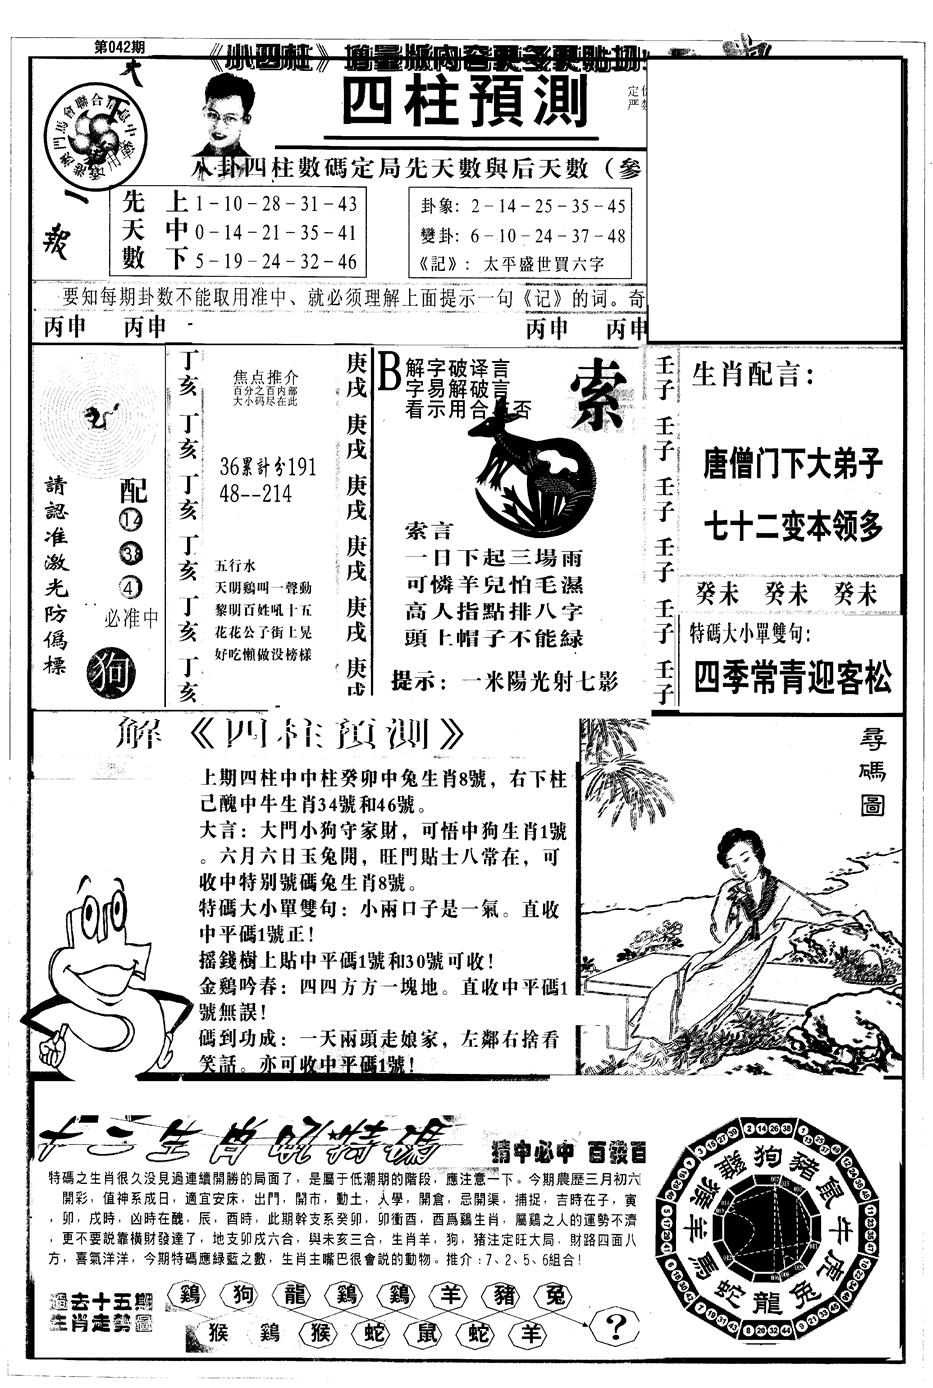 第042期
《小四柱》增量版內容更多更貼切
四柱預測
八卦四柱數碼定局先天數與后天數（參
大
一
報
先 上 1-10-28-31-43
天 中 0-14-21-35-41
數 下 5-19-24-32-46
卦象: 2-14-25-35-45
變卦: 6-10-24-37-48
《記》: 太平盛世買六字
要知每期卦数不能取用准中、就必须理解上面提示一句《记》的词。奇
丙申 丙申
丙申 丙申
請認准激光防僞標
配
14
38
4
必准中
狗
丁亥 丁亥 丁亥 丁亥 丁亥 丁亥
焦点推介
百分之百内部
大小码尽在此
36累計分191
48--214
五行水
天明鷄叫一聲動
黎明百姓吼十五
花花公子街上晃
好吃懶做没榜樣
庚戌 庚戌 庚戌 庚戌 庚戌 庚戌
B 解字破译言
字易解破言
看示用合 否
索
索言
一日下起三場雨
可憐羊兒怕毛濕
高人指點排八字
頭上帽子不能緑
提示: 一米陽光射七影
壬子 壬子 壬子 壬子 壬子 壬子
生肖配言:
唐僧门下大弟子
七十二变本领多
癸未 癸未 癸未
特碼大小單雙句:
四季常青迎客松
解《四柱預測》
上期四柱中中柱癸卯中兔生肖8號，右下柱
己醜中牛生肖34號和46號。
大言: 大門小狗守家財，可悟中狗生肖1號
。六月六日玉兔開，旺門貼士八常在，可
收中特别號碼兔生肖8號。
特碼大小單雙句: 小兩口子是一氣。直收
中平碼1號正!
摇錢樹上貼中平碼1號和30號可收!
金鷄吟春: 四四方方一塊地。直收中平碼1
號無誤!
碼到功成: 一天兩頭走娘家，左鄰右捨看
笑話。亦可收中平碼1號!
尋碼圖
十二生肖吼特碼
猜中必中 百發百
特碼之生肖很久没見過連續開勝的局面了，是屬于低潮期的階段，應注意一下。今期農歷三月初六
開彩，值神系成日，適宜安床，出門，開市，動土，人學，開倉，忌開渠，捕捉，吉時在子，寅
，卯，戌時，凶時在醜，辰，酉時，此期幹支系癸卯，卯衝酉，酉爲鷄生肖，屬鷄之人的運勢不濟
，更不要説靠横財發達了，地支卯戌六合，與未亥三合，生肖羊，狗，猪注定旺大局，財路四面八
方，喜氣洋洋，今期特碼應緑藍之數，生肖主嘴巴很會説的動物。推介:7、2、5、6組合!
過去十五期
生肖走勢圖
鷄 狗 龍 鷄 鷄 羊 豬 兔
猴 鷄 猴 蛇 鼠 蛇 羊 ?
狗 豬 鼠 牛 虎 兔 龍 蛇 馬 羊 猴 雞